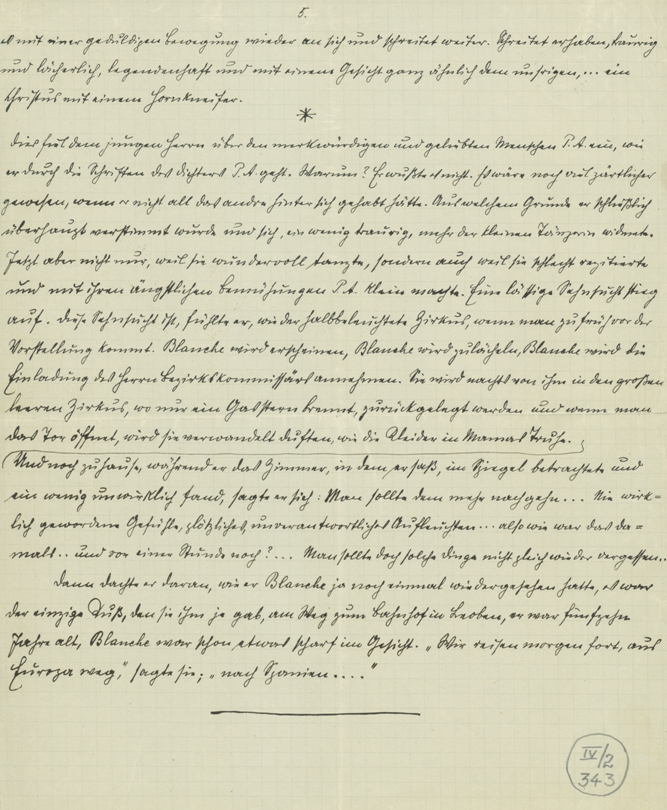 5.
es mit einer geduldigen Bewegung wieder an sich und schreitet weiter. Schreitet erhaben, traurig
und lächerlich, legendenhaft und mit einem Gesicht ganz ähnlich dem unsrigen, ... ein
Christus mit einem Hornkneifer.
*
Dies fiel dem jungen Herrn über den merkwürdigen und geliebten Menschen P.A. ein, wie
er durch die Schriften des Dichters P.A. geht. Warum? Er wußte es nicht. Es wäre noch viel zärtlicher
gewesen, wenn er nicht all das andre hinter sich gehabt hätte. Aus welchem Grunde er schließlich
überhaupt verstimmt wurde und sich, ein wenig traurig, mehr der kleinen Tänzerin widmete.
Jetzt aber nicht nur, weil sie wundervoll tanzte, sondern auch weil sie schlecht rezitierte
und mit ihren ängstlichen Bemühungen P.A. klein machte. Eine lässige Sehnsucht stieg
auf. Diese Sehnsucht ist, fühlte er, wie der halbbeleuchtete Zirkus, wenn man zu früh vor der
Vorstellung kommt. Blanche wird erscheinen, Blanche wird zulächeln, Blanche wird die
Einladung des Herrn Bezirkskommissärs annehmen. Sie wird nachts von ihm in den großen
leeren Zirkus, wo nur ein Gasstern brennt, zurückgelegt werden und wenn man
das Tor öffnet, wird sie verwandelt duften, wie die Kleider in Mamas Truhe.
Und noch zuhause, während er das Zimmer, in dem er saß, im Spiegel betrachtete und
ein wenig unwirklich fand, sagte er sich: Man sollte dem mehr nachgehn... Nie wirk=
lich gewordene Gefühle, plötzliches, unverantwortliches Aufleuchten... also wie war das da=
mals.. und vor einer Stunde noch?... Man sollte doch solche Dinge nicht gleich wieder vergessen..
Dann dachte er daran, wie er Blanche ja noch einmal wiedergesehen hatte, es war
der einzige Kuß, den sie ihm je gab, am Weg zum Bahnhof in Leoben, er war fünfzehn
Jahre alt, Blanche war schon etwas scharf im Gesicht. „Wir reisen morgen fort, aus
Europa weg," sagte sie; „nach Spanien...."
IV/2
343